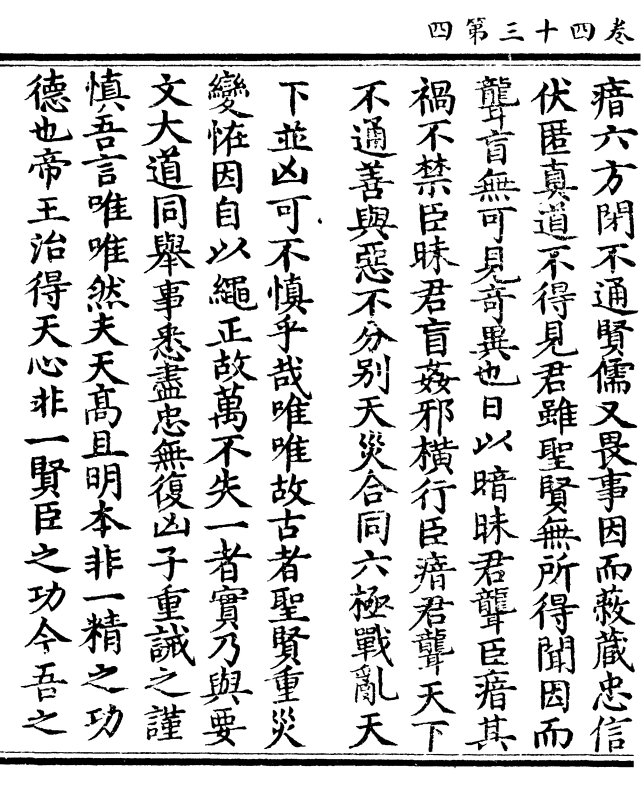 卷四十三第四
瘖六方閉不通賢儒又畏事因而蔽蔵忠信
伏匿真道不得見君雖聖賢無所得聞因而
聾盲無可見竒異也日以暗昧君聾臣瘖其
禍不禁臣昧君盲姦邪橫行臣瘖君聾天下
不通善與惡不分别天災合同六極戰亂天
下並凶可不慎乎哉唯唯故古者聖賢重災
變恠因自以繩正故萬不失一者實乃與要
文大道同舉事悉盡忠無復凶子重誡之謹
慎吾言唯唯然夫天髙且明本非一精之功
德也帝王治得天心非一賢臣之功今吾之